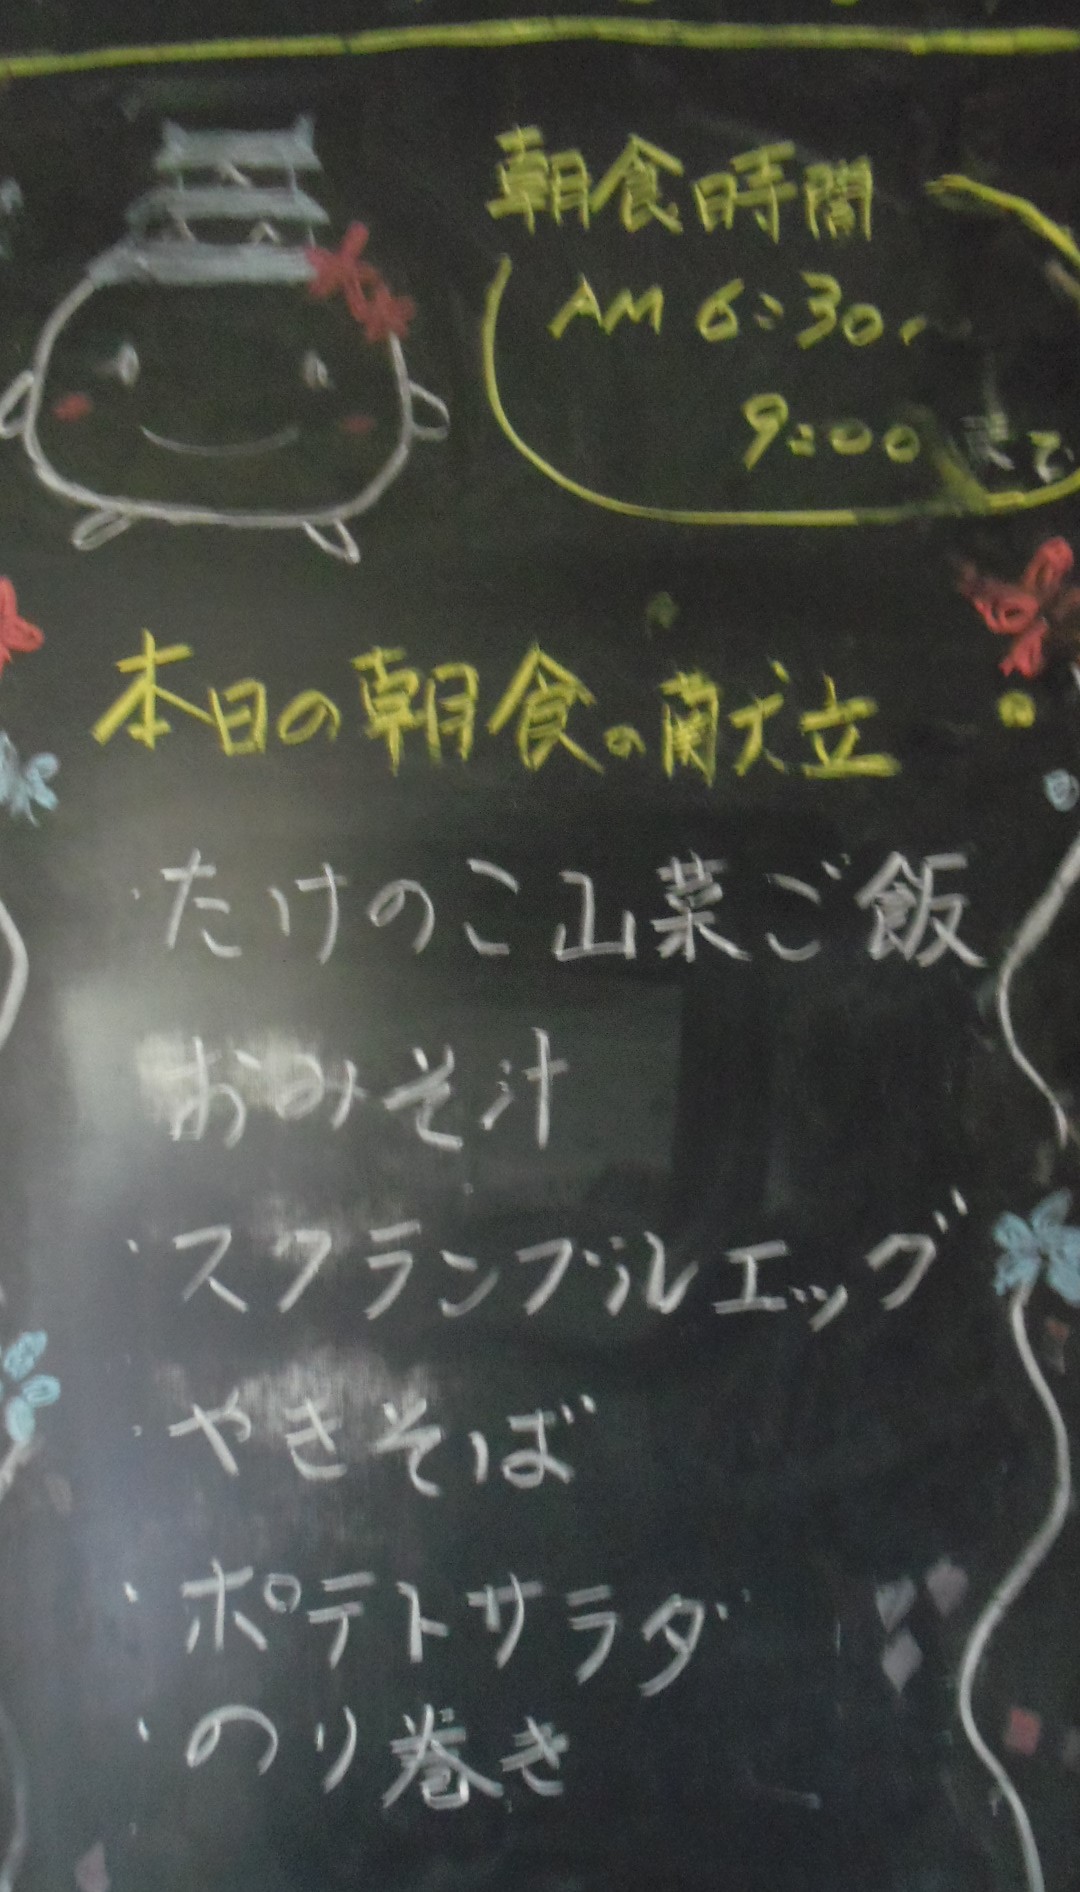 朝食時間
AM 6:30~
9:00まで
本日の朝食の献立
・たけのこ山菜ご飯
おみそ汁
・スクランブルエッグ
・やきそば
・ポテトサラダ
・のり巻き